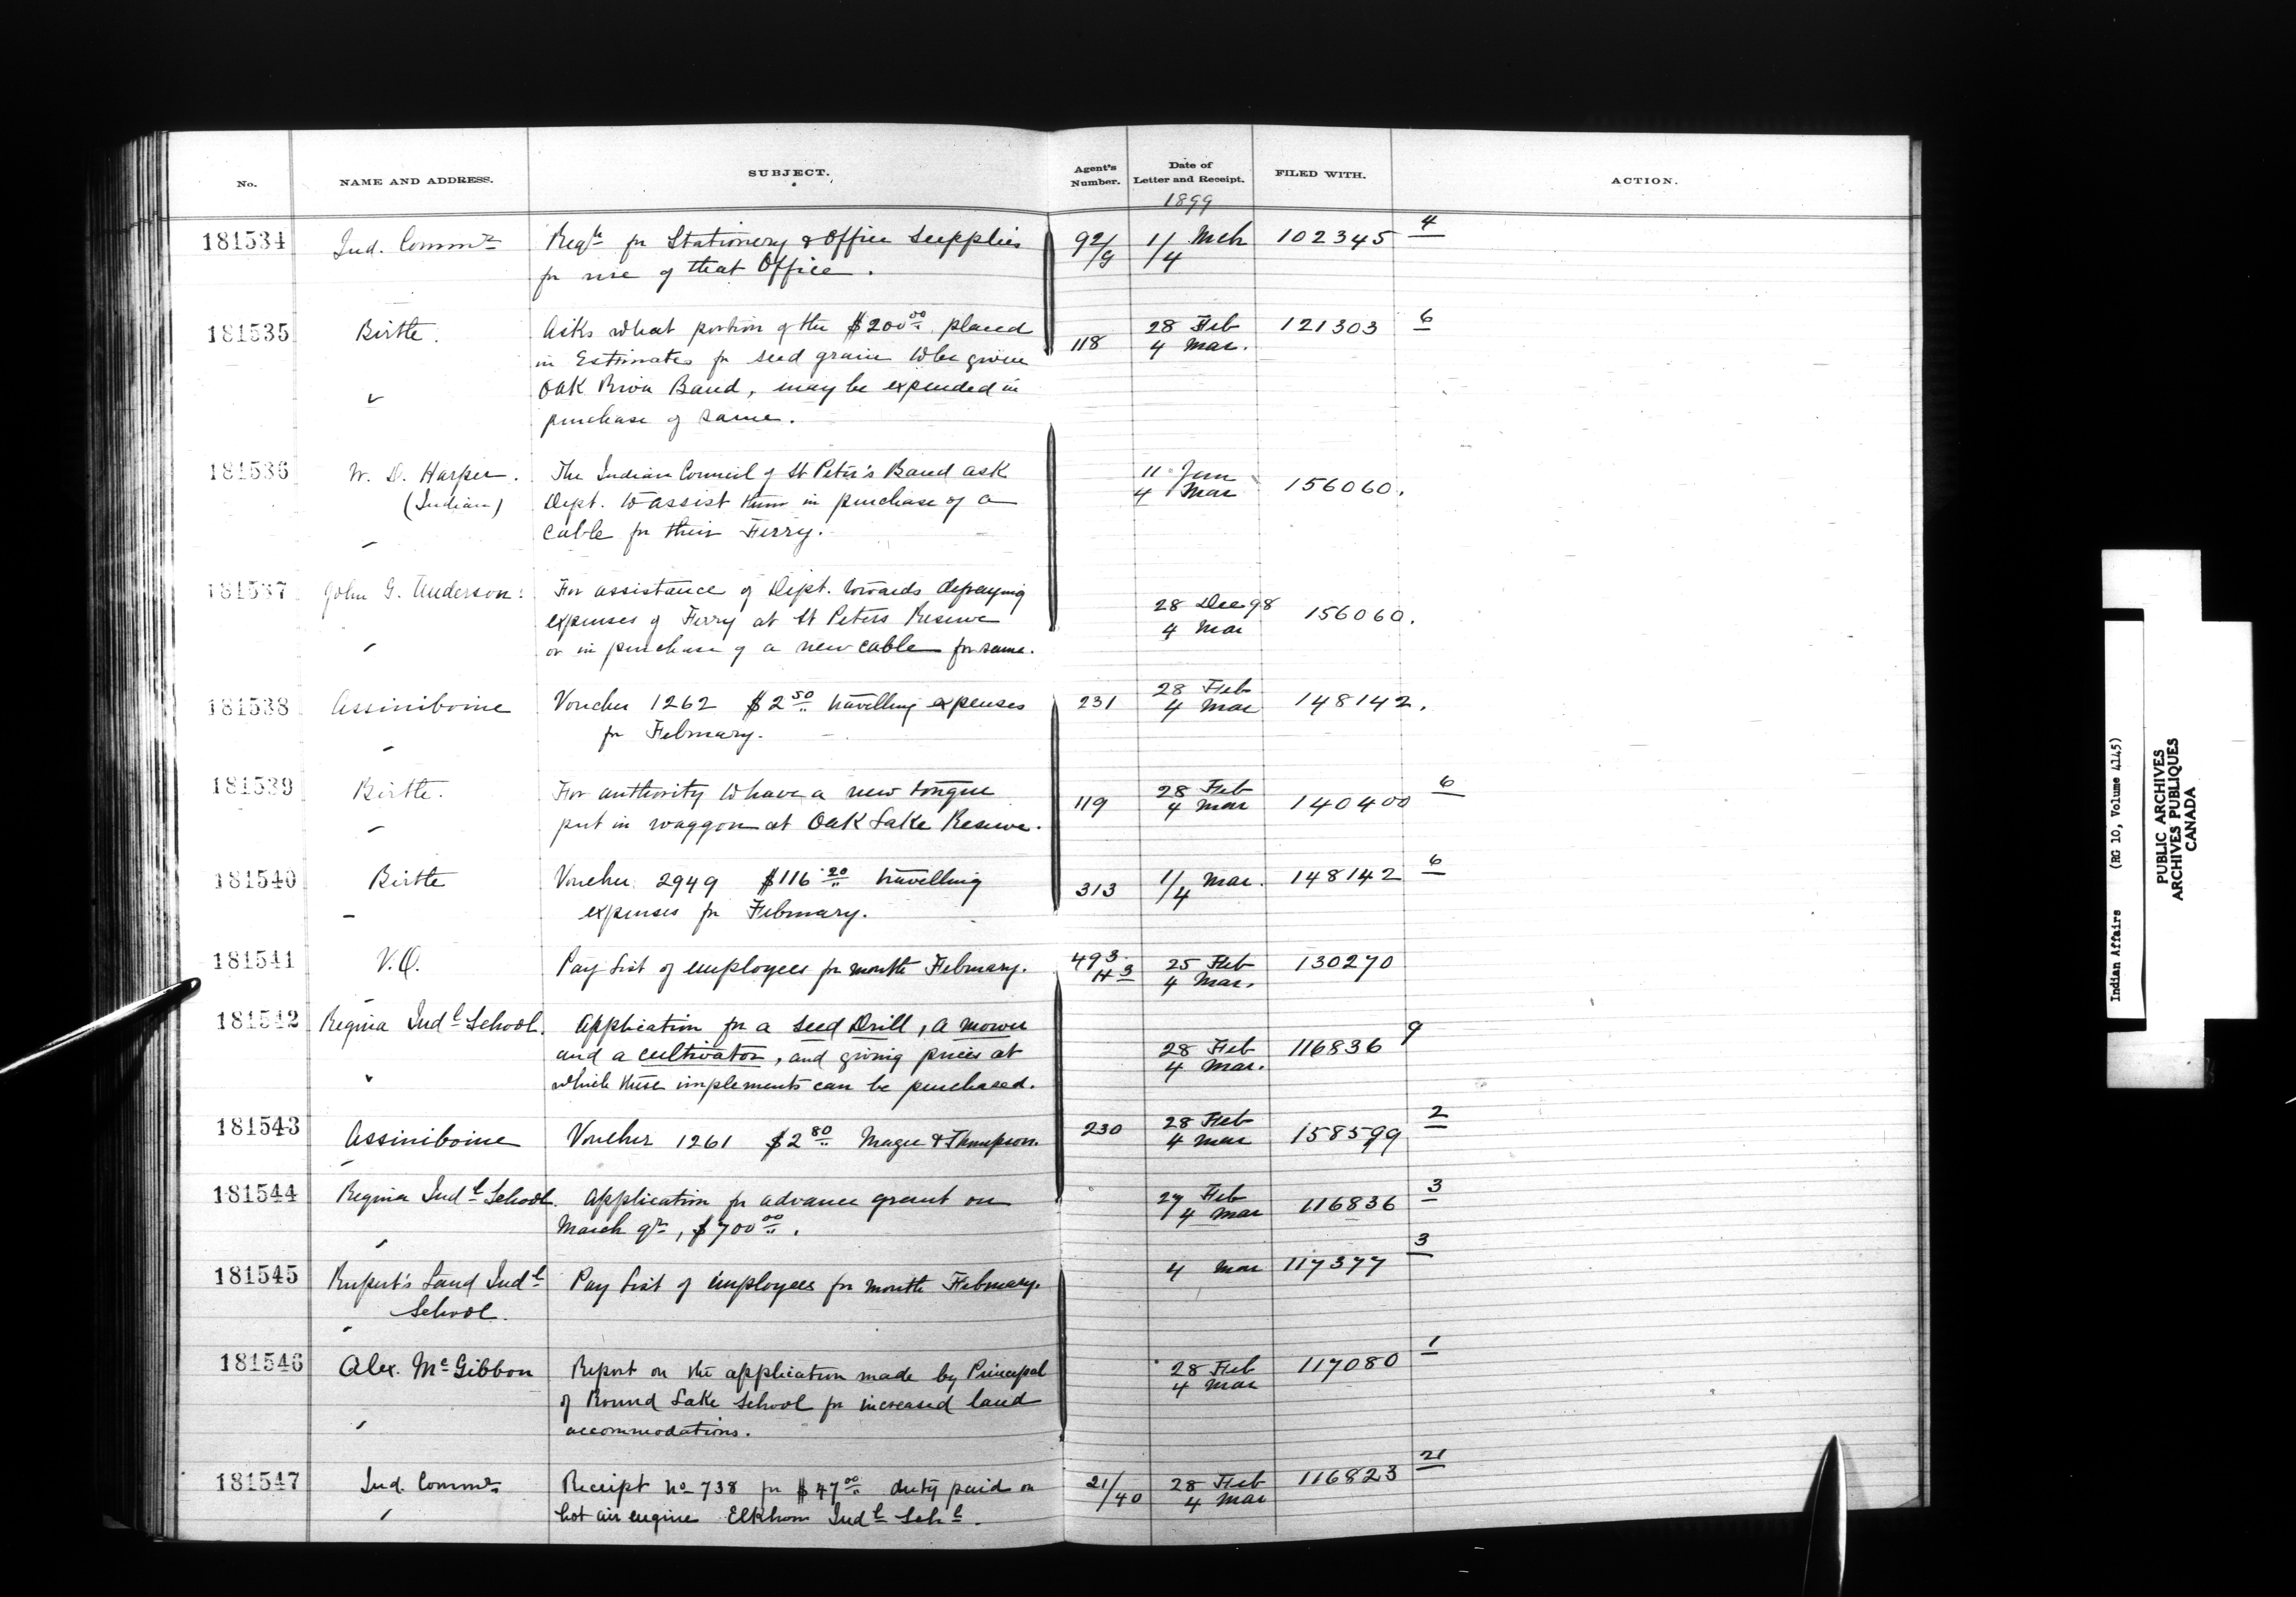 No. NAME AND ADDRESS. SUBJECT. Agent's Number. Date of Letter and Receipt. FILED WITH. ACTION.
1899
181534 Ind. Commr Reqn for Stationery & Office Supplies 92/9 1/4 Mch 102345 4
for use of that Office.
181535 Birtle. Asks what portion of the $200 00 placed 118 28 Feb 121303 6
in Estimates for seed grain to be given 4 Mar.
Oak River Band, may be expended in
purchase of same.
181536 W. D. Harper. The Indian Council of St Peter's Band ask 11 Jan
(Indian) Dept. to assist them in purchase of a 4 Mar 156060.
cable for their Ferry.
181537 John G. Anderson: For assistance of Dept. towards defraying 28 Dec 98 156060.
expenses of Ferry at St Peters Reserve 4 Mar
or in purchase of a new cable for same.
181538 Assiniboine Voucher 1262 $2 50 travelling expenses 231 28 Feb 148142.
for February. 4 Mar
181539 Birtle. For authority to have a new tongue 119 28 Feb 140400 6
put in waggon at Oak Lake Reserve. 4 Mar
181540 Birtle Voucher 2949 $116.20 travelling 313 1/4 Mar. 148142 6
expenses for February.
181541 V.O. Pay List of employees for month February. 493 25 Feb 130270
H3 4 Mar.
181542 Regina Indl School. Application for a Seed Drill, a mower
and a cultivator, and giving prices at 28 Feb 116836 9
which these implements can be purchased. 4 Mar.
181543 Assiniboine Voucher 1261 $2 80 Magee & Thompson. 230 28 Feb 158599 2
4 Mar
181544 Regina Indl School. Application for advance grant on 27 Feb 116836 3
March qr, $700 00. 4 Mar
181545 Rupert's Land Indl Pay List of employees for month February. 4 Mar 117377 3
School.
181546 Alex. McGibbon Report on the application made by Principal 28 Feb 117080 1
of Round Lake School for increased land 4 Mar
accommodations.
181547 Ind. Commr Receipt No 738 for $47 00 duty paid on 21/40 28 Feb 116823 21
hot air engine Elkhorn Indl Schl. 4 Mar
Indian Affairs (RG 10, Volume 4145)
PUBLIC ARCHIVES
ARCHIVES PUBLIQUES
CANADA